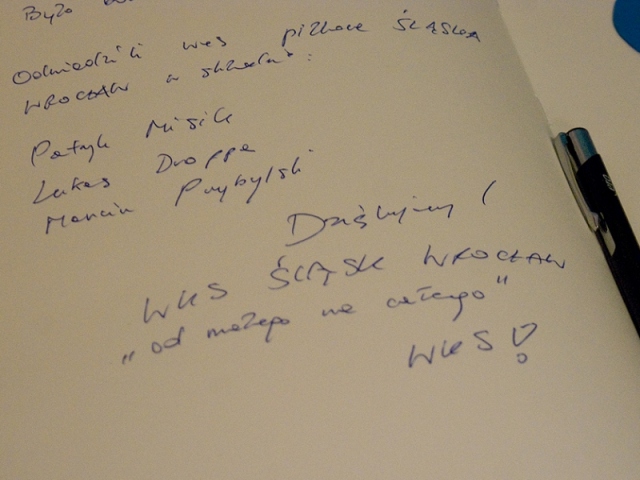 Było
Odwiedzili was piłkarze ŚLĄSKA
WROCŁAW w składzie:
Patryk Misik
Lukas Droppa
Marcin Przybylski
Dziękujemy!
WKS ŚLĄSK WROCŁAW
„od małego na całego"
WKS!